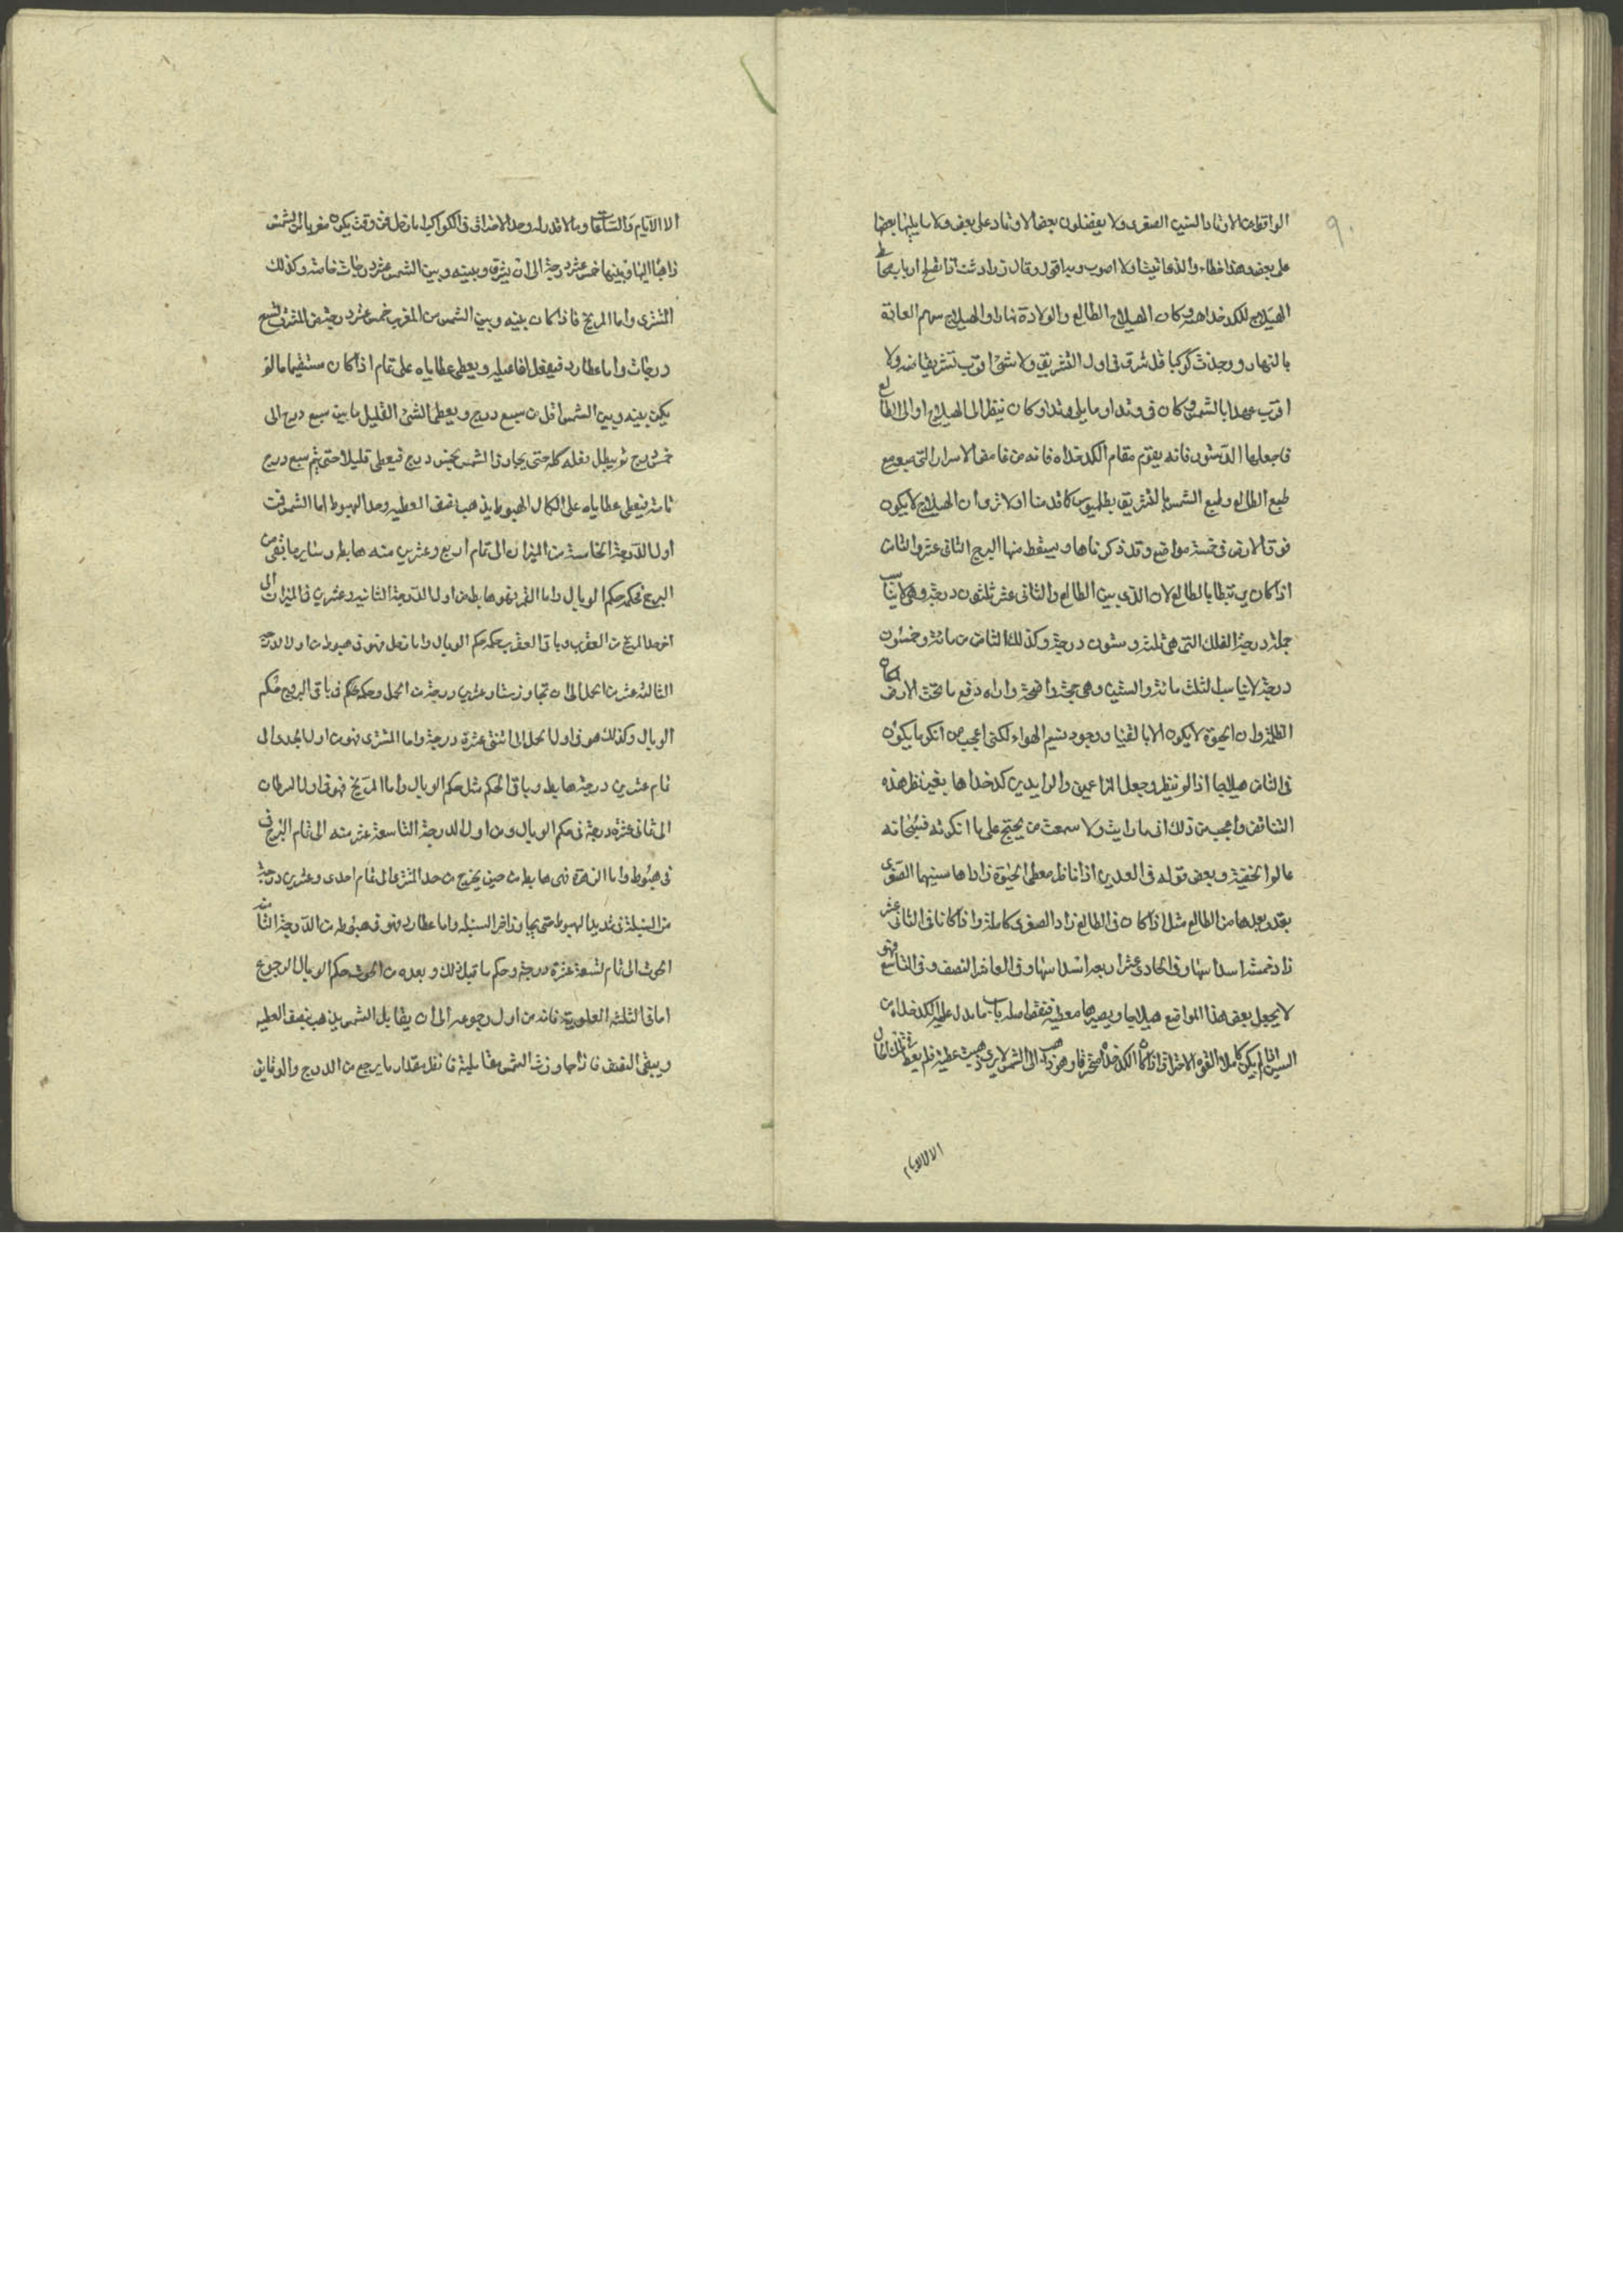 ٩٠
الواقعات الاوتاد السنين الصغرى ولا يفضلون بعض الاوتاد على بعض ولا ما يليها بعضها
على بعض وهذا خطاء والذى اولا اصوب وبه اقول وقال زرادشت
الهيلاج للكدخداهية وكان الهيلاج الطالع والولادة نهارا والهيلاج سهم السعادة
بالنهار ووجدت كوكبا قد شرق فى اول التشريق ولا شئ اقرب تشريقا منه ولا
اقرب عهدا بالشمس وكان فى وتد او ما يلى وتد او كان ينظر الى الهيلاج او الى الطالع
فاجعلها الدستور فانه يقوم مقام الكدخداه فانه من غامض الاسرار التى
طبع الطالع وطبع الشمس بالتشريق بطلميوس كما قدمنا اولا ثروان الهيلاج لا يكون
فوق الارض فى خمسة مواضع وقد ذكرناها ويسقط منها البرج الثانى عشر والثامن
اذا كان مرتبطا بالطالع لان الذى بين الطالع والثانى عشر ثلثون درجة وهى لا تناسب
جملة درجة الفلك التى هى ثلثمائة وستون درجة وكذلك الثامن من مائة وخمسون
درجة لا تناسب الثلث مائة والستين وهى حجة واضحة واراه دفع ما تحت الارض
الظلمة وان الحيوة لا يكون الا بالضياء ووجود نسيم الهواء لكنى اعجب من انكر ما يكون
فى الثامن هيلاجا اذا لم ينظر وجعل الزاعمين والرايدين كدخداها بغير نظر هذه
التناقض واعجب من ذلك انى ما رايت ولا سمعت من يحتج على ما انكرته فسبحانه
عالم الخفية وبعض قوله فى السعدين اذا ناظر معطى الحيوة زاداها سنيهما الصغرى
بقدر بعدها من الطالع مثل اذا كان فى الطالع زاد الصغرى كاملة واذا كانا فى الثانى عشر
زاد خمسة اسداسها وفى الحادى عشر اربعة اسداسها وفى العاشر النصف وفى التاسع فهو
لا يجعل بعض هذا المواضع هيلاجا ويصيرها معطية فنقض اصله باب ما يدل عليه الكدخداه من
السنين اذا لم يكن كاملا القوة الاحتراق اذا كان الكدخداه محترقا وهو ذاهب الى الشمس لا يرى ذهبت عطيته فلم يعط
الا الايام
الا الايام والساعات وما لا قدر له وحد الاحتراق فى الكواكب اما زحل فمن وقت يكون مغربا الى الشمس
ذاهبا اليها وبينهما خمس عشر درجة الى ان يشرق وبينه وبين الشمس عشر درجات خاصة وكذلك
المشترى واما المريخ فاذا كان بينه وبين الشمس من المغرب خمس عشر درجة من المشرق تسع
درجات واما عطارد فيفعل افاعيله ويعطى عطاياه على تمام اذا كان مستقيما ما لم
يكن بينه وبين الشمس اقل من سبع درج ويعطى الشئ القليل ما بين سبع درج الى
خمس درج ثم يبطل فعله كله حتى يجاوز الشمس بخمس درج فيعطى قليلا حتى يتم سبع درج
تامة فيعطى عطاياه على الكمال الهبوط يذهب نصف العطيه وحد الهبوط اما الشمس فمن
اول الدرجة الخامسة من الميزان الى تمام اربع وعشرين منه هابط وسايرها بقى من
البرج فحكمه حكم الوبال واما القمر فهو هابط من اول الدرجة الثانيه وعشرين فى الميزان الى
اخر حد المريخ من العقرب وباقى العقرب حكمه حكم الوبال واما زحل فهو فى هبوط من اول الدرجة
الثالثه عشر من الحمل الى ان تجاوز ستا وعشرين درجة من الحمل وحكمه حكم فى باقى البرج حكم
الوبال وكذلك هو فى اول الحمل الى اثنتى عشرة درجة واما المشترى فهو من اول الجدى الى
تمام عشرين درجة هابط وباقى الحكم مثل حكم الوبال واما المريخ فهو فى اول السرطان
الى ثمانى عشرة درجة فى حكم الوبال ومن اول الدرجة التاسعة عشر منه الى تمام البرج فى
فى هبوط واما الزهرة فهى هابط من حين يخرج من حد المشترى الى تمام احدى وعشرين درجة
من السنبلة فى شديد الهبوط حتى يجاوز اخر السنبلة واما عطارد فهو فى هبوطه من الدرجة الثالثة
الحوت الى تمام لتسعة عشرة درجة وحكم ما قبل ذلك وبعده من الحوت حكم الوبال الرجوع
اما فى الثلثه العلوية فانه من اول رجوعه الى ان يقابل الشمس يذهب نصف العطيه
ويبقى النصف فاذا جاوزت الشمس مقابلة فانقل مقدار ما يرجع من الدرج والدقايق